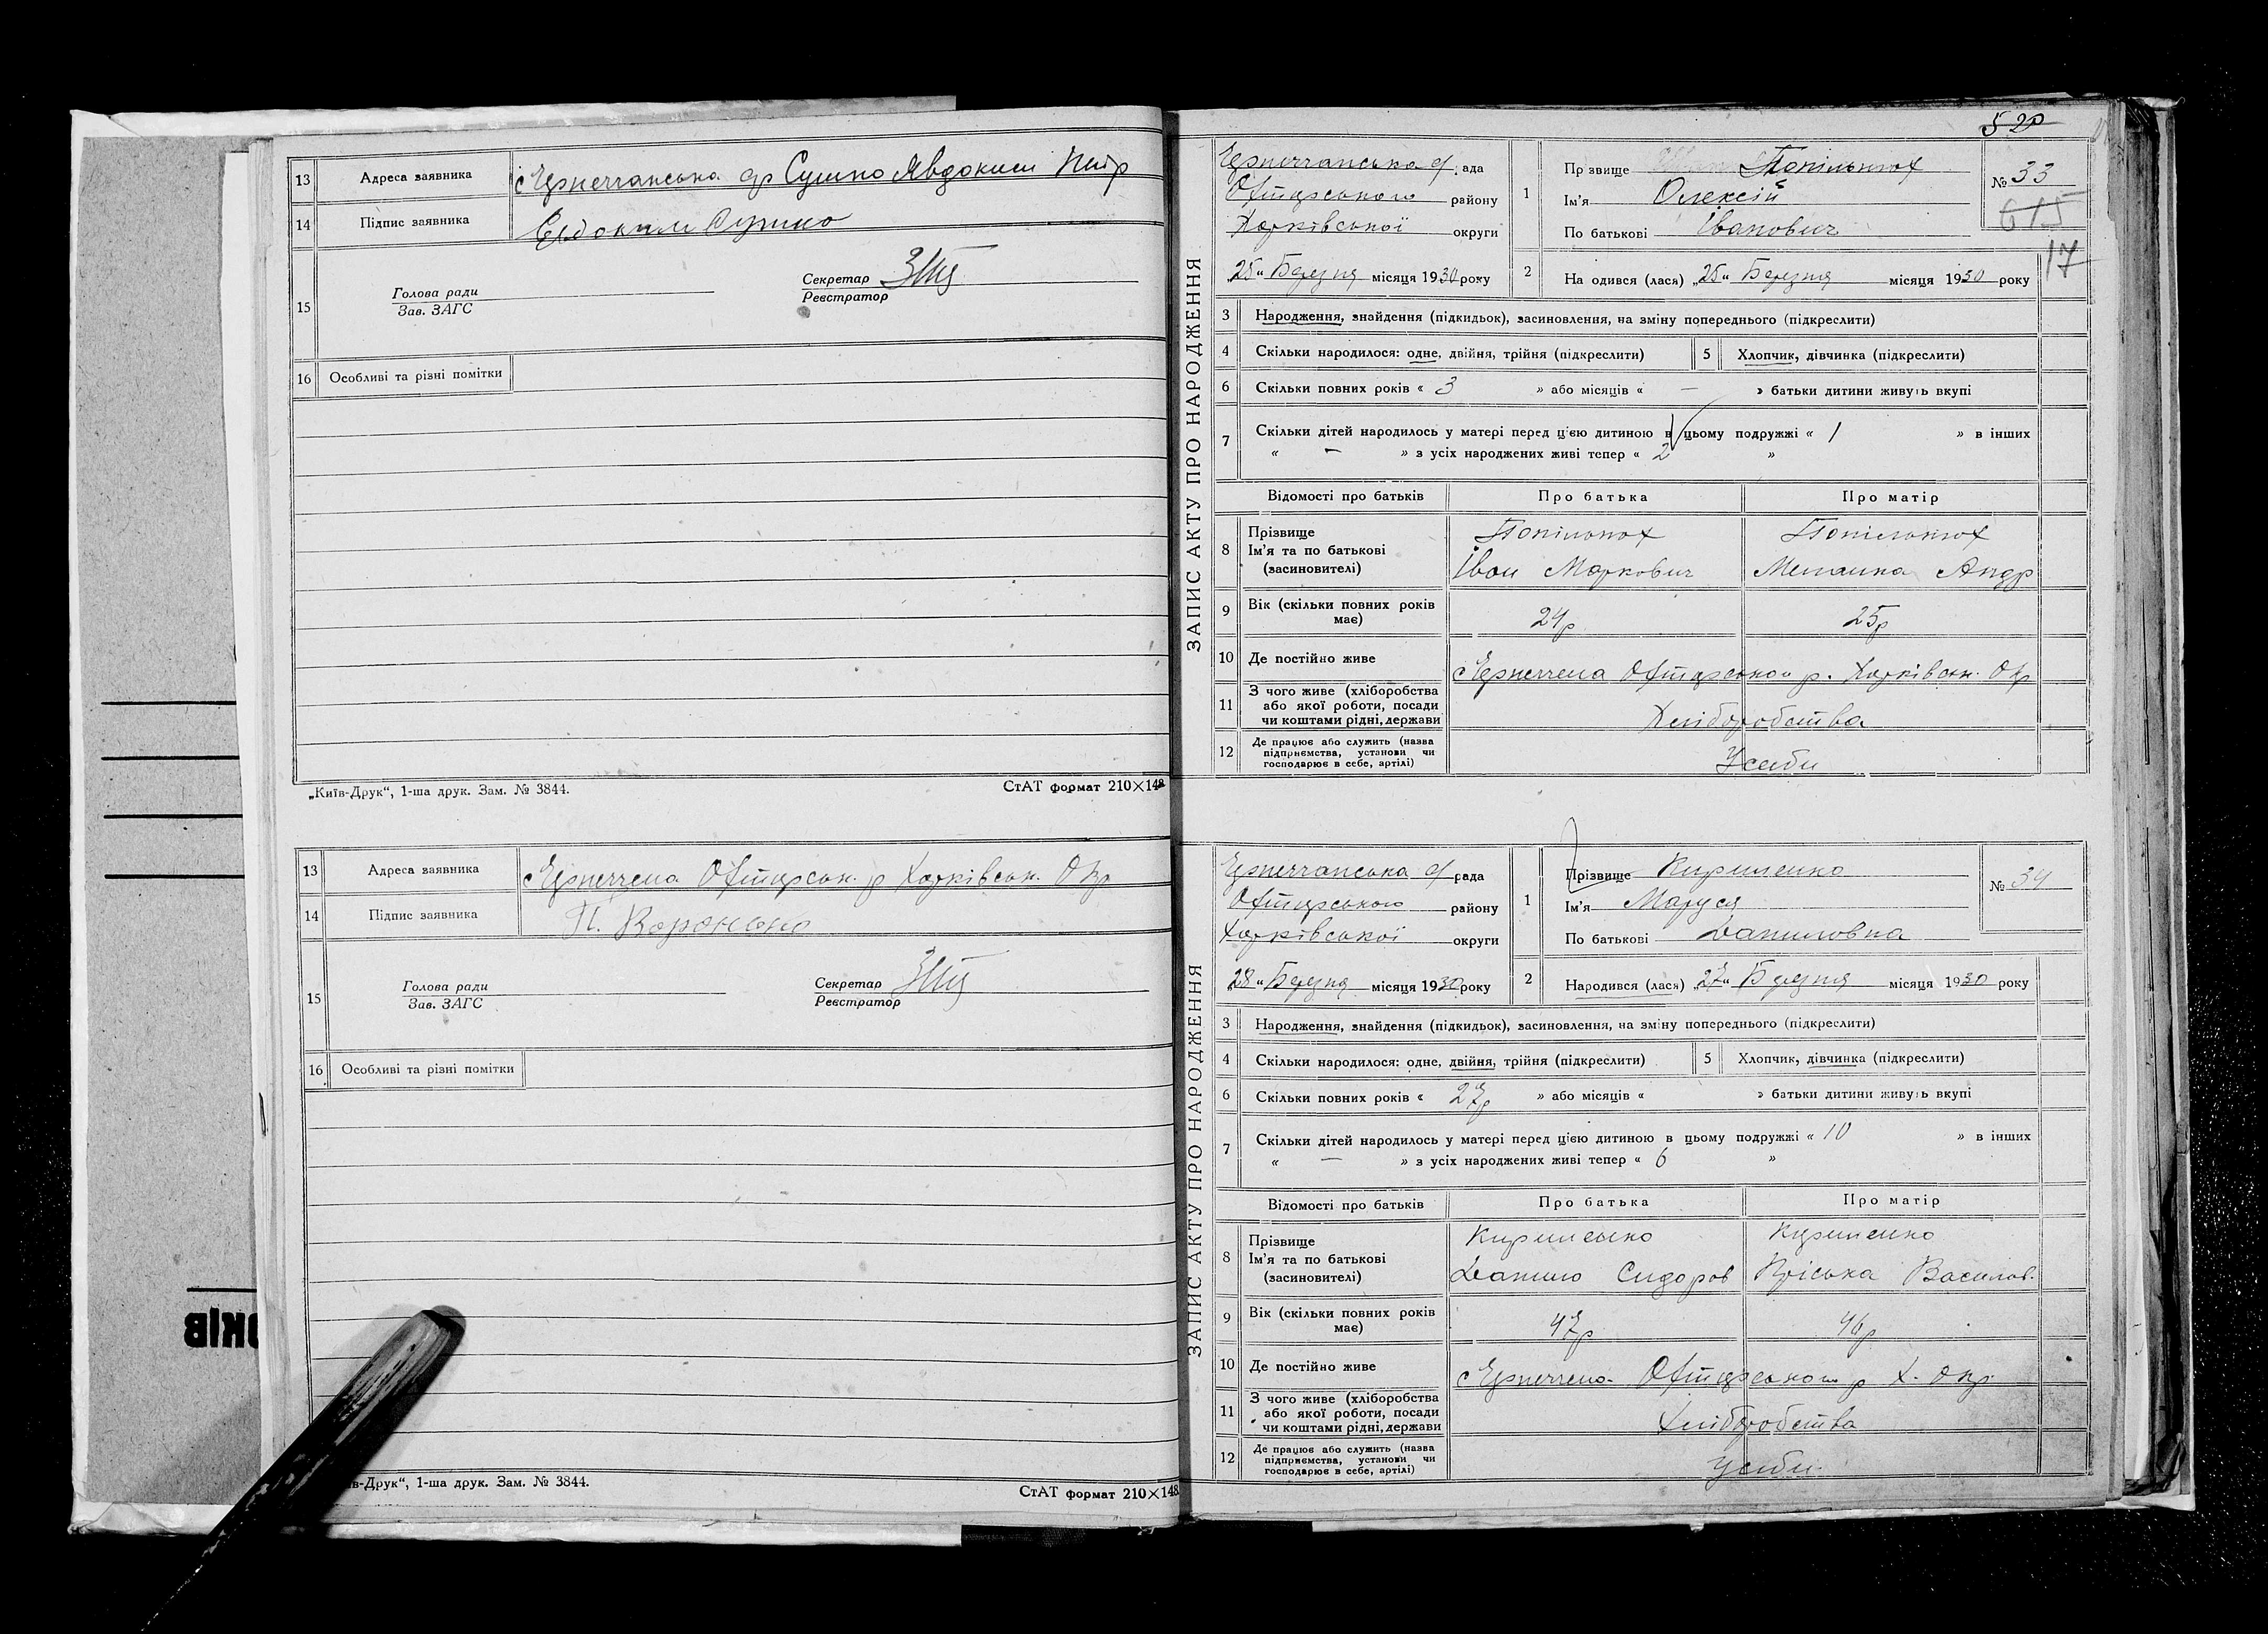 13 Адреса заявника
14 Підпис заявника
15 Голова ради
Зав. ЗАГС
Секретар
Реєстратор
16 Особливі та різні помітки
„Київ-Друк“, 1-ша друк. Зам. № 3844.
СтАТ формат 210×148
13 Адреса заявника Харківськ. Окр
14 Підпис заявника
15 Голова ради
Зав. ЗАГС
Секретар
Реєстратор
16 Особливі та різні помітки
-Друк“, 1-ша друк. Зам. № 3844.
СтАТ формат 210×148
520
ЗАПИС АКТУ ПРО НАРОДЖЕННЯ
району
Харківської округи
„25“ Березня місяця 1930 року
1 Прізвище
Ім'я Олексій
По батькові Іванович
№ 33
615
17
2 На одився (лася) „25“ Березня місяця 1930 року
3 Народження, знайдення (підкидьок), засиновлення, на зміну попереднього (підкреслити)
4 Скільки народилося: одне, двійня, трійня (підкреслити) 5 Хлопчик, дівчинка (підкреслити)
6 Скільки повних років « 3 » або місяців « — » батьки дитини живуть вкупі
7 Скільки дітей народилось у матері перед цією дитиною в цьому подружжі « 1 » в інших
« — » з усіх народжених живі тепер « 2 »
Відомості про батьків Про батька Про матір
8 Прізвище
Ім'я та по батькові Іван Маркович Андр
(засиновителі)
9 Вік (скільки повних років має) 24р 25р
10 Де постійно живе
11 З чого живе (хліборобства або якої роботи, посади чи коштами рідні, держави Хліборобства
12 Де працює або служить (назва підприємства, установи чи господарює в себе, артілі) У себи
ЗАПИС АКТУ ПРО НАРОДЖЕННЯ
рада
району
Харківської округи
„28“ Березня місяця 1930 року
1 Прізвище Кириленко
Ім'я Маруся
По батькові Даниловна
№ 34
2 Народився (лася) „27“ Березня місяця 1930 року
3 Народження, знайдення (підкидьок), засиновлення, на зміну попереднього (підкреслити)
4 Скільки народилося: одне, двійня, трійня (підкреслити) 5 Хлопчик, дівчинка (підкреслити)
6 Скільки повних років « 27р » або місяців « » батьки дитини живуть вкупі
7 Скільки дітей народилось у матері перед цією дитиною в цьому подружжі « 10 » в інших
« — » з усіх народжених живі тепер « 6 »
Відомості про батьків Про батька Про матір
8 Прізвище Кириленко Кириленко
Ім'я та по батькові Данило Сидоров Пріська Василов.
(засиновителі)
9 Вік (скільки повних років має) 47р 46р
10 Де постійно живе
11 З чого живе (хліборобства або якої роботи, посади чи коштами рідні, держави Хліборобства
12 Де працює або служить (назва підприємства, установи чи господарює в себе, артілі) У себи